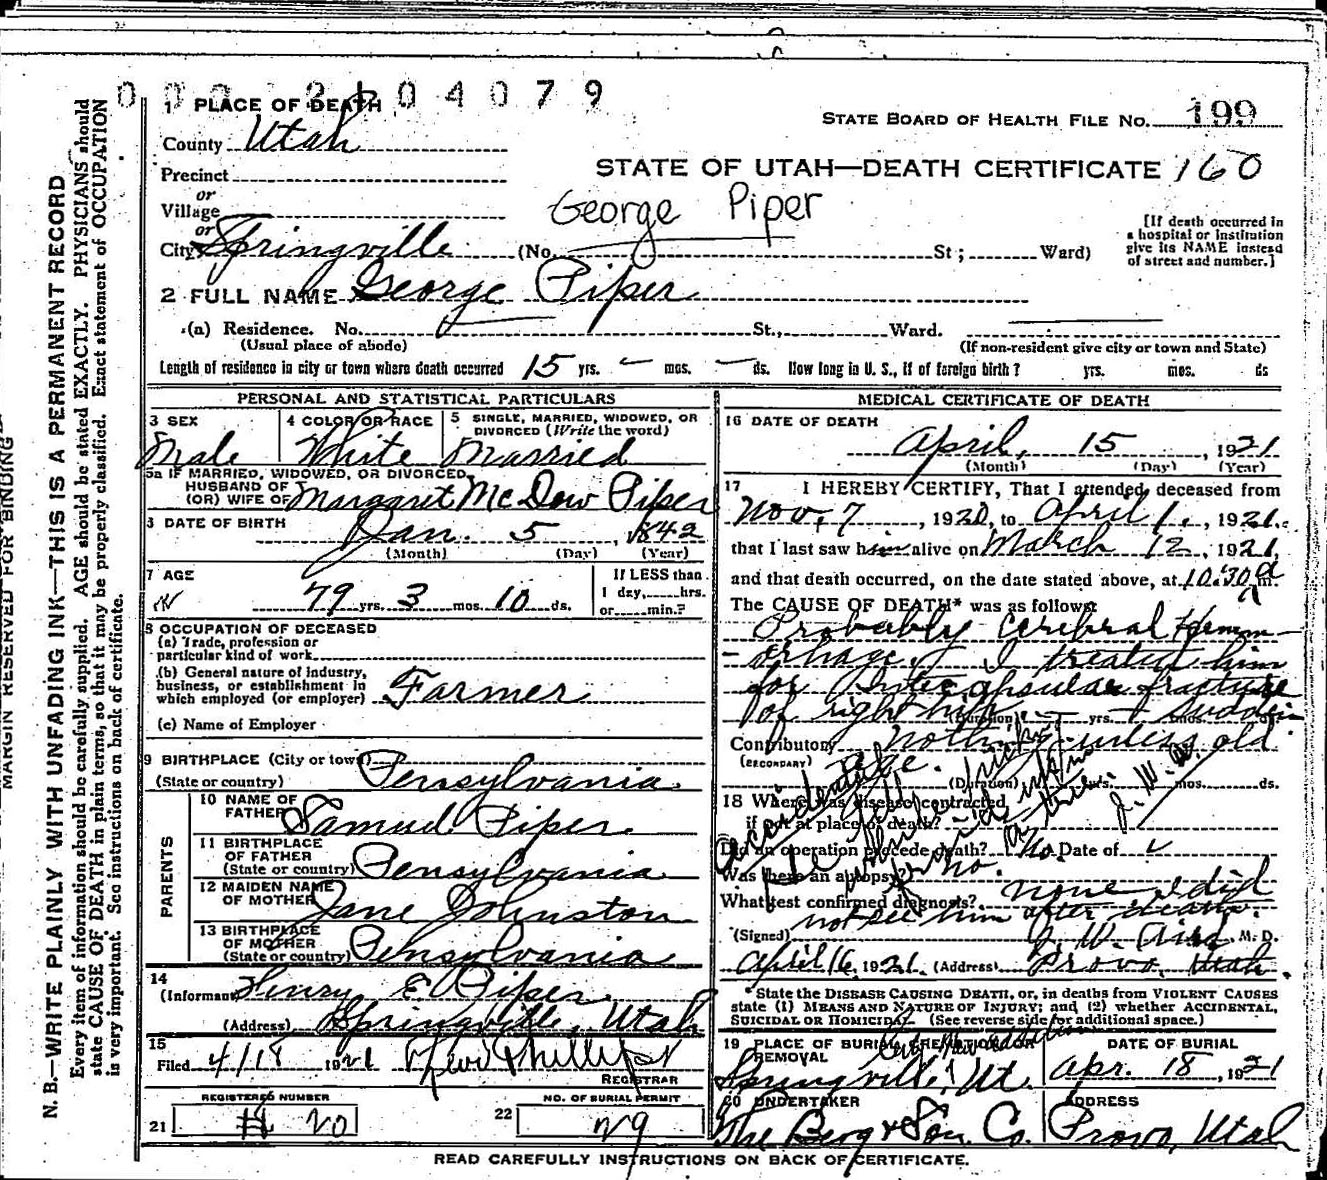 MARGIN RESERVED FOR BINDING
N. B.—WRITE PLAINLY WITH UNFADING INK—THIS IS A PERMANENT RECORD
Every item of information should be carefully supplied. AGE should be stated EXACTLY. PHYSICIANS should
state CAUSE OF DEATH in plain terms, so that it may be properly classified. Exact statement of OCCUPATION
is very important. See instructions on back of certificate.
2104079
1 PLACE OF DEATH
County Utah
Precinct
or
Village
or
City Springville (No. St; Ward)
STATE BOARD OF HEALTH FILE NO. 199
STATE OF UTAH—DEATH CERTIFICATE 160
George Piper
[If death occurred in
a hospital or institution
give its NAME instead
of street and number.]
2 FULL NAME George Piper
(a) Residence. No. St., Ward.
(Usual place of abode) (If non-resident give city or town and State)
Length of residence in city or town where death occurred 15 yrs. — mos. — ds. How long in U. S., if of foreign birth? yrs. mos. ds
PERSONAL AND STATISTICAL PARTICULARS
3 SEX Male
4 COLOR OR RACE White
5 SINGLE, MARRIED, WIDOWED, OR
DIVORCED (Write the word)
Married
5a IF MARRIED, WIDOWED, OR DIVORCED,
HUSBAND OF
(OR) WIFE OF Margaret McDow Piper
DATE OF BIRTH Jan. 5, 1842
(Month) (Day) (Year)
7 AGE 79 yrs. 3 mos. 10 ds.
If LESS than
1 day, hrs.
or min.?
8 OCCUPATION OF DECEASED
(a) Trade, profession or
particular kind of work
(b) General nature of industry,
business, or establishment in
which employed (or employer) Farmer
(c) Name of Employer
9 BIRTHPLACE (City or town)
(State or country) Pensylvania
PARENTS
10 NAME OF
FATHER Samuel Piper
11 BIRTHPLACE
OF FATHER
(State or country) Pensylvania
12 MAIDEN NAME
OF MOTHER Jane Johnston
13 BIRTHPLACE
OF MOTHER
(State or country) Pensylvania
14
(Informant) Henry E. Piper
(Address) Springville, Utah
15
Filed 4/18 1921
REGISTRAR
REGISTERED NUMBER
21 20
NO. OF BURIAL PERMIT
22
MEDICAL CERTIFICATE OF DEATH
16 DATE OF DEATH
April, 15, 1921
(Month) (Day) (Year)
17 I HEREBY CERTIFY, That I attended deceased from
Nov, 7, 1920, to April 1., 1921.
that I last saw him alive on March 12, 1921,
and that death occurred, on the date stated above, at 10:30 a m.
The CAUSE OF DEATH* was as follows:
Probably Cerebral Hemm-
orhage. I treated him
for Intercapsular fracture
of right hip
(Duration) yrs. mos. ds.
Contributory nothing unless old
(SECONDARY) age.
(Duration) yrs. mos. ds.
18 Where was disease contracted,
if not at place of death?
Did an operation precede death? No. Date of
Was there an autopsy? no.
What test confirmed diagnosis? none I did
not see him after death.
(Signed) J. W. Aird M. D.
April 16, 1921. (Address) Provo, Utah.
State the DISEASE CAUSING DEATH, or, in deaths from VIOLENT CAUSES
state (1) MEANS AND NATURE OF INJURY; and (2) whether ACCIDENTAL,
SUICIDAL OR HOMICIDAL. (See reverse side for additional space.)
19 PLACE OF BURIAL, CREMATION OR
REMOVAL
Springville, Ut.
DATE OF BURIAL
Apr. 18, 1921
20 UNDERTAKER
The Berg & Son Co.
ADDRESS
Provo, Utah
READ CAREFULLY INSTRUCTIONS ON BACK OF CERTIFICATE.